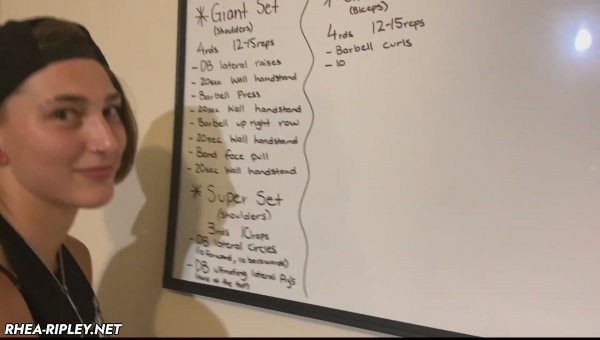 * Giant Set
(Shoulders)
4rds 12-15reps
- DB lateral raises
- 20sec Wall handstand
- Barbell Press
- 20sec Wall handstand
- Barbell up right row
- 20sec Wall handstand
- Band face pull
- 20sec Wall handstand
* Super Set
(Shoulders)
3rds 10reps
- DB lateral circles
(10 forward, 10 backwards)
- DB lateral fly's
(Biceps)
4rds 12-15reps
- Barbell curls
- 10
RHEA-RIPLEY.NET